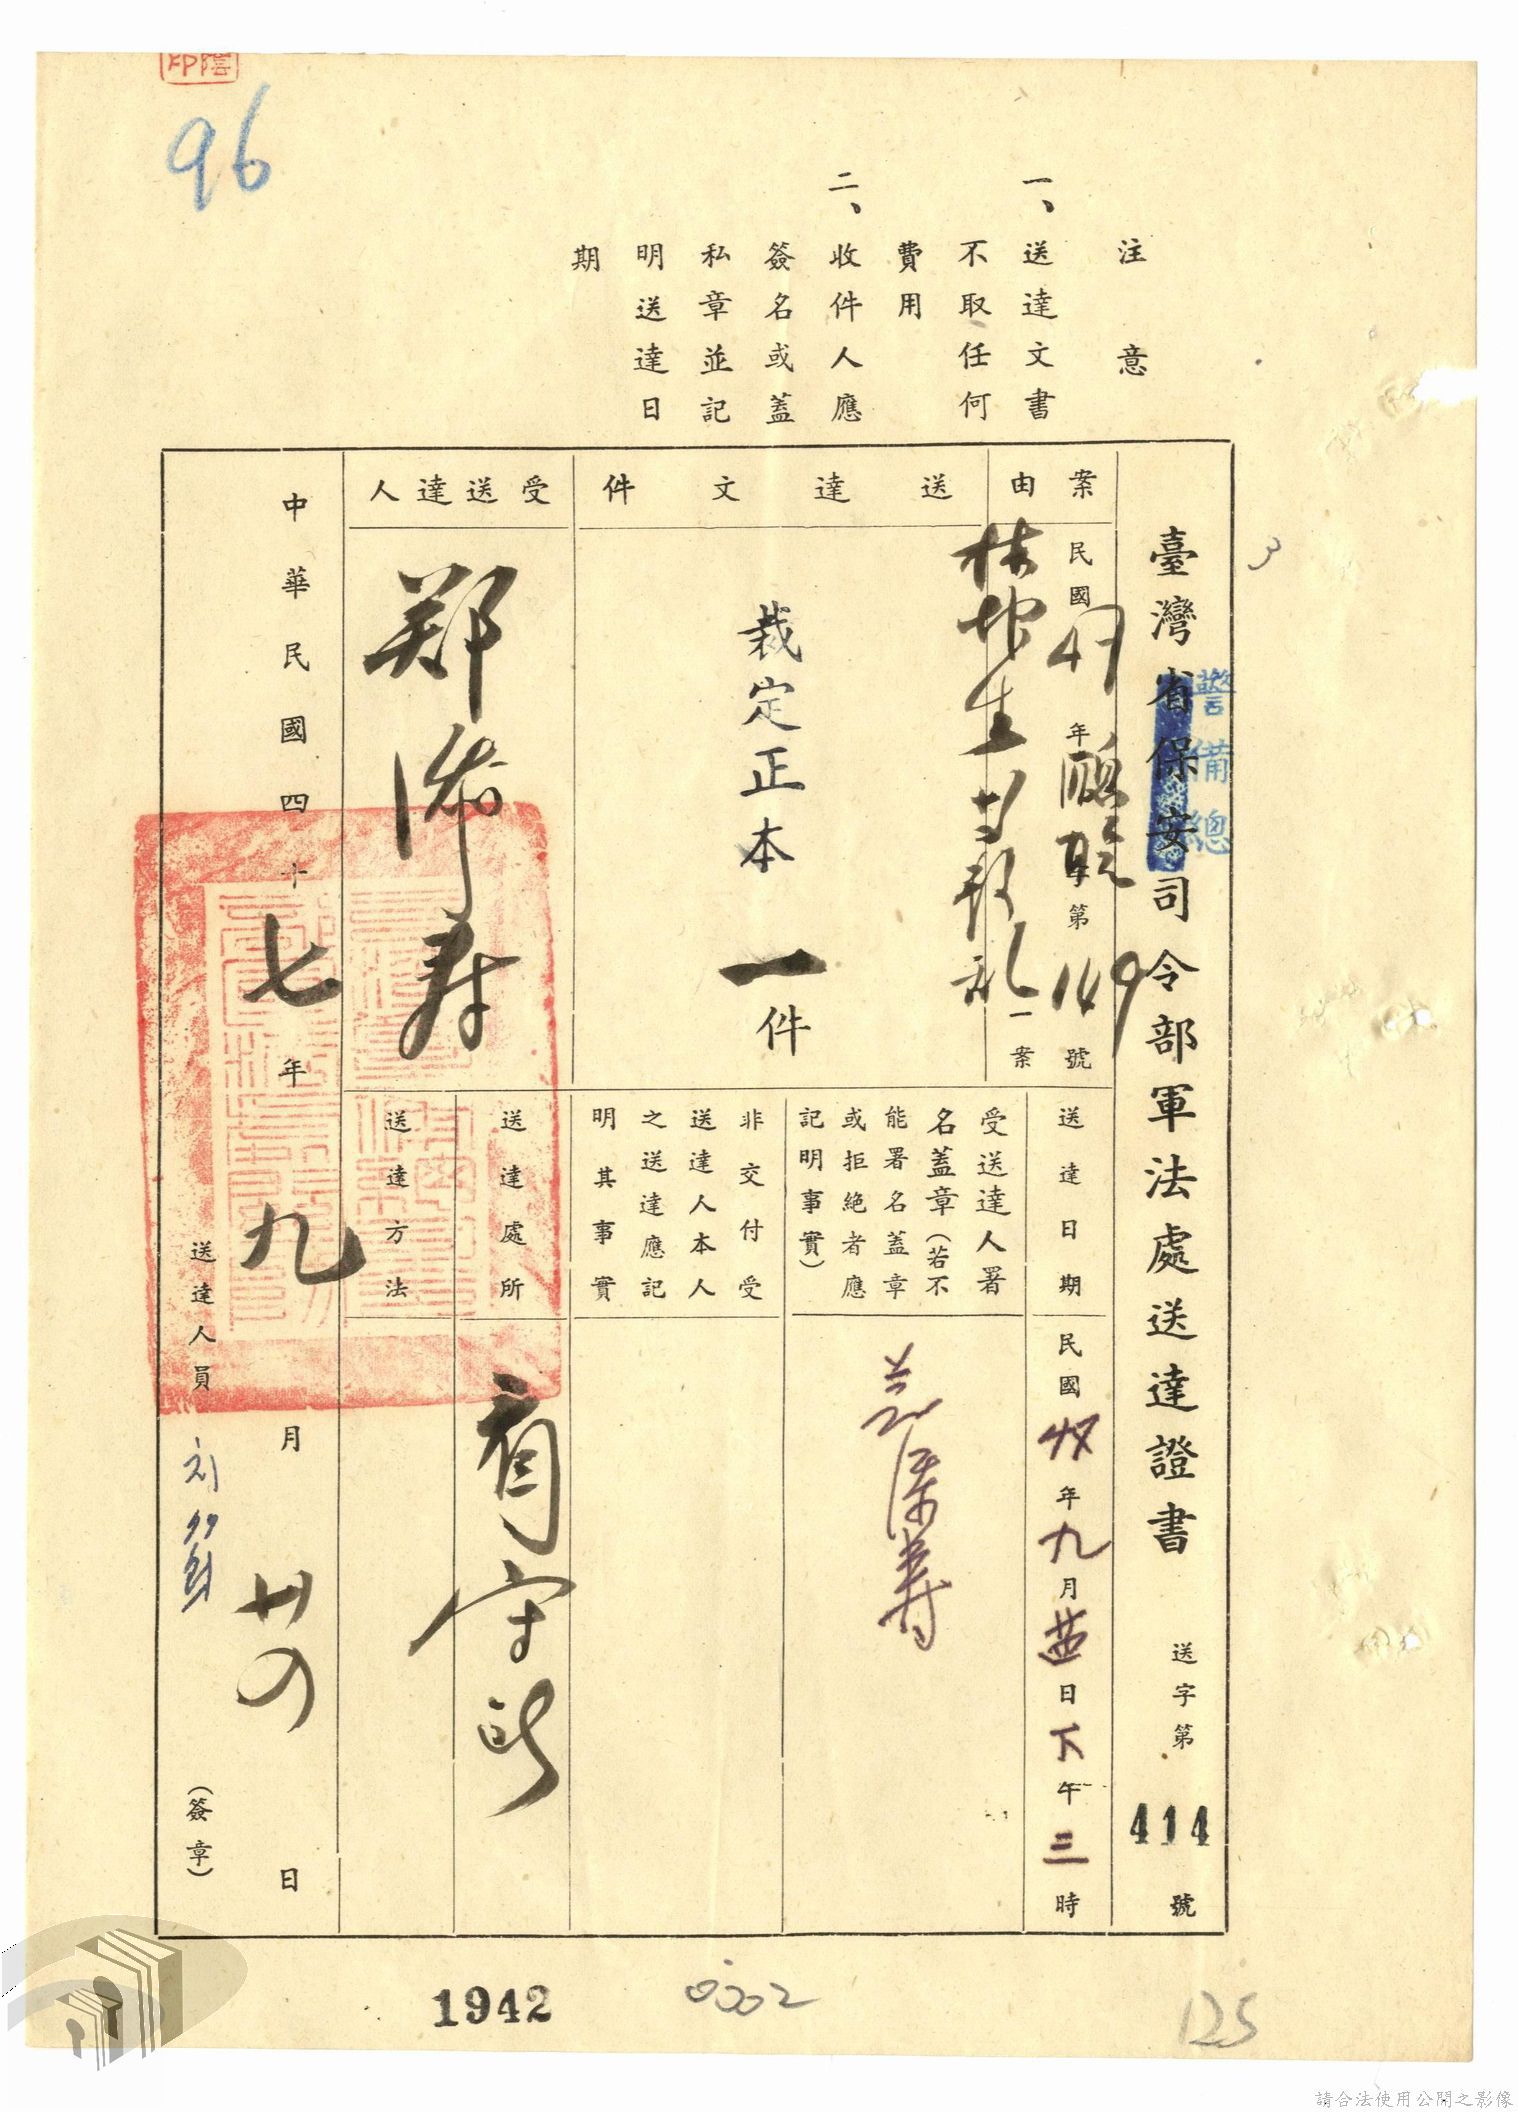 96
注意
一、送達文書
不取任何
費用
二、收件人應
簽名或蓋
私章並記
明送達日
期
3
警備總
臺灣省保安司令部軍法處送達證書
送字第414號
案由
民國47年
第149號
林坤生
一案
送達文件
裁定正本一件
受送達人
送達日期
民國47年九月
日下午三時
受送達人署
名蓋章(若不
能署名蓋章
或拒絕者應
記明事實)
非交付受
送達人本人
之送達應記
明其事實
送達處所
看守所
送達方法
中華民國四十七年九月廿四日
送達人員
(簽章)
1942
0002
125
請合法使用公開之影像